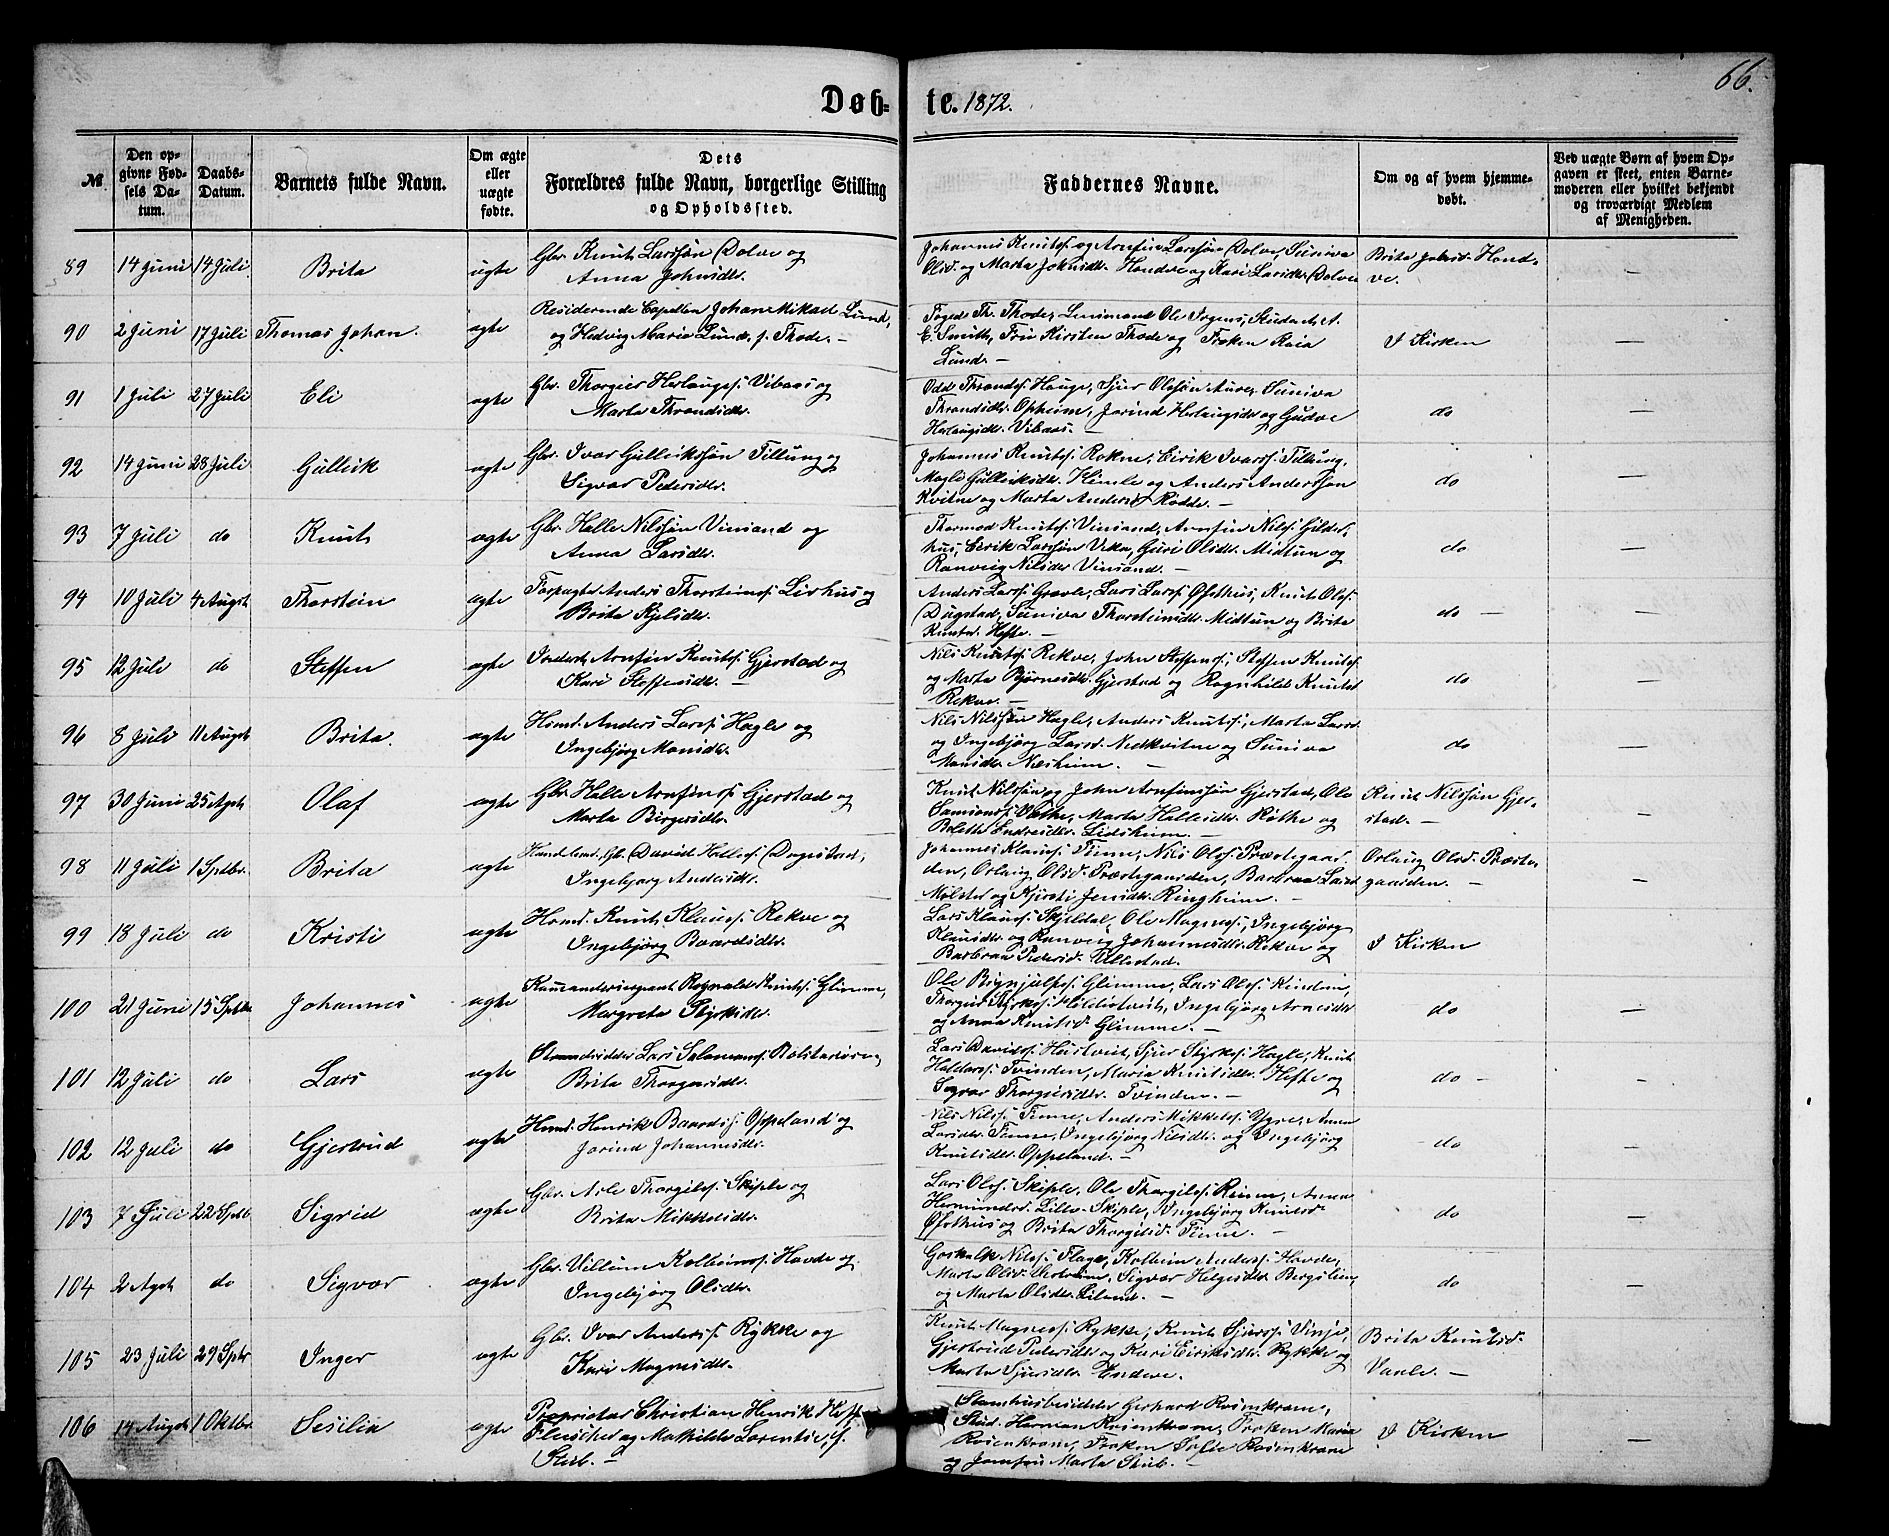 66.
Døb-te. 1872.
№
Den op-
givne Fød-
sels Da-
tum.
Daabs-
Datum.
Barnets fulde Navn.
Om ægte
eller
uægte
fødte.
Dets
Forældres fulde Navn, borgerlige Stilling
og Opholdssted.
Faddernes Navne.
Om og af hvem hjemme-
døbt.
Ved uægte Børn af hvem Op-
gaven er skeet, enten Barne-
moderen eller hvilket bekjendt
og troværdigt Medlem
af Menigheden.
89 14 Juni 14 Juli Brita ægte Gbr. Knut Larssøn Dolve og
Anna Johnsdtr.
Johannes Knuts. og Arnfin Larssøn Dolve, Suniva
Olsd. og Marta Johnsdtr. Handve og Kari Larsdtr. Dolve
Brita Johnsd. Hand-
ve. —
90 2 Juni 17 Juli Thomas Johan. ægte Residerende Capellan Johan Mikael Lund,
og Hedvig Marie Lund, f. Thode. —
Foged Th. Thode, Lensmand Ole
E. Smith, Fru Kirsten Thode og Frøken Kaia
Lund. —
I Kirken —
91 1 Juli 27 Juli Eli ægte Gbr. Thorgier Herlaugs. Vibaas og
Marta Throndsdtr.
Odd Thronds. Hauge, Sjur Olssøn Aure, Suniva
Throndsdtr. Opheim, Jorind Herlaugsdtr og Gudve
Herlaugsdtr. Vibaas. —
do —
92 14 Juni 28 Juli Gulleik ægte Gbr. Ivar Gulleikssøn Tillung og
Sigvor Pedersdtr.
Johannes Knuts. Rokne, Eirik Ivars. Tillung,
Magli Gulleiksdtr. Himle og Anders Anderssøn
Kvitne og Marta Andersd. Rødde. —
do —
93 7 Juli do Knut ægte Gbr. Halle Nilssøn Vinsand og
Anna Larsdtr.
Thormod Knuts. Vinsand, Arnfin Nils. Gilder-
hus, Eirik Larssøn Veka, Guri Olsdtr. Midtun og
Ranveig Nilsdtr Vinsand. —
do —
94 10 Juli 4 August Thorstein ægte Forpagter Anders Thorsteins. Lirhus og
Brita Kjelsdtr.
Anders Lars. Græve, Lars Lars. Øfsthus, Knut Ols.
Dugstad, Suniva Thorsteinsdtr. Midtun og Brita
Knutsd. Hefte. —
do — —
95 12 Juli do Steffen ægte Inderst Arnfin Knuts. Gjerstad og
Kari Steffensdtr. —
Nils Knuts. Rekve, John Steffens., Steffen Knuts.
og Marta Bjørnesdtr. Gjerstad og Ragnhild Knutsd
Rekve. —
do —
96 8 Juli 11 August Brita. ægte Hsmd. Anders Lars. Hagle og
Ingebjørg Monsdtr.
Nils Nilssøn Hagle, Anders Knuts., Marta Larsd
og Ingebjørg Larsd. Nedkvitne og Suniva
Monsdtr. Næsheim. —
do —
97 30 Juni 25 Agst Olaf ægte Gbr. Halle Arnfins. Gjerstad og
Marta Birgersdtr.
Knut Nilssøn og John Arnfinssøn Gjerstad, Ole
Samsons. Røthe, Marta Hallesdtr. Røthe og
Bolette Endresdtr. Lidsheim. —
Knut Nilssøn Gjer-
stad. — —
98 11 Juli 1 Septbr. Brita ægte David Halles. Dugstad,
Ingebjørg Andersdtr.
Johannes Klaus. Finne, Nils Ols. Præstegaar-
den, Orlaug Olsd. Præstegaarden, Barbraa Larsd
Mølster og Kjersti Jensdtr. Ringheim. —
Orlaug Olsd. Præste-
gaarden. — —
99 18 Juli do Kristi ægte Hsmd. Knut Klaus. Rekve og
Ingebjørg Baardsdtr.
Lars Klaus. Skjeldal, Ole Magnes., Ingebjørg
Klausdtr. og Ranveig Johannesdtr. Rekve og
Barbraa Pedersd. Ullestad.
I Kirken —
100 21 Juni 15 Septbr Johannes ægte Kommandersergeant Ragnald Knuts. Glimme,
Margreta Styrksdtr.
Ole Brynjulfs. Glimme, Lars Ols. Kinden,
Thorgeir Styrks. Hildistveit, Ingebjørg Arnesdtr
og Anna Knutsd. Glimme. —
do —
101 12 Juli do Lars ægte Strandsidder Lars Salamons.
Brita Thorgersdtr.
Lars Davids. Hustveit, Sjur Styrks. Hagle, Knut
Haldors. Tvinden, Maria Knutsdtr. Hefte og
Sigvor Thorgiersdtr. Tvinden. —
do — —
102 12 Juli do Gjertrud ægte Hsmd. Henrik Baards. Oppeland og
Jorind Johannesdtr.
Nils Nils. Finne, Anders Mikkels. Ygre, Anna
Larsdtr. Finne, Ingebjørg Nilsdtr. og Ingebjørg
Knutsdtr. Oppeland. —
do —
103 7 Juli 22 Septbr Sigrid ægte Gbr. Asle Thorgils. Skiple og
Brita Mikkelsdtr.
Lars Ols. Skiple, Ole Thorgils. Rinne, Anna
Hermundsd. Lille-Skiple, Ingebjørg Knutsd.
Øfsthus og Brita Thorgilsd. Finne. —
do —
104 2 Agst do Sigvor ægte Gbr. Villum Kolbeins. Havde og
Ingebjørg Olsdtr.
Goskalk Nils. Flage, Kolbein Anders. Havde,
Marta Olsd. Sigvor Helgesdtr. Bergslien,
og Marta Olsdtr. Liland. —
do —
105 23 Juli 29 Sptbr Inger ægte Gbr. Ivar Anders. Rykke og
Kari Magnesdtr.
Knut Magnes. Rykke, Knut Sjurs. Vinje,
Gjertrud Pedersdtr og Kari Eiriksdtr. Rykke og
Marta Sjursdtr. Endeve.
Brita Knutsd.
Vaale. — —
106 14 Augst 1 Oktbr. Sesilia ægte Proprietær Christian Henrik
Fleischer og Mathilde Lorentse, f.
Stub. —
Stamhusbesidder Gerhard Rosenkrone,
Stud. Herman Rosenkrone, Frøken Maria
Rosenkrone, Frøken Sofie Rosenkrone
og Jomfru Marta Stub. —
I Kirken —